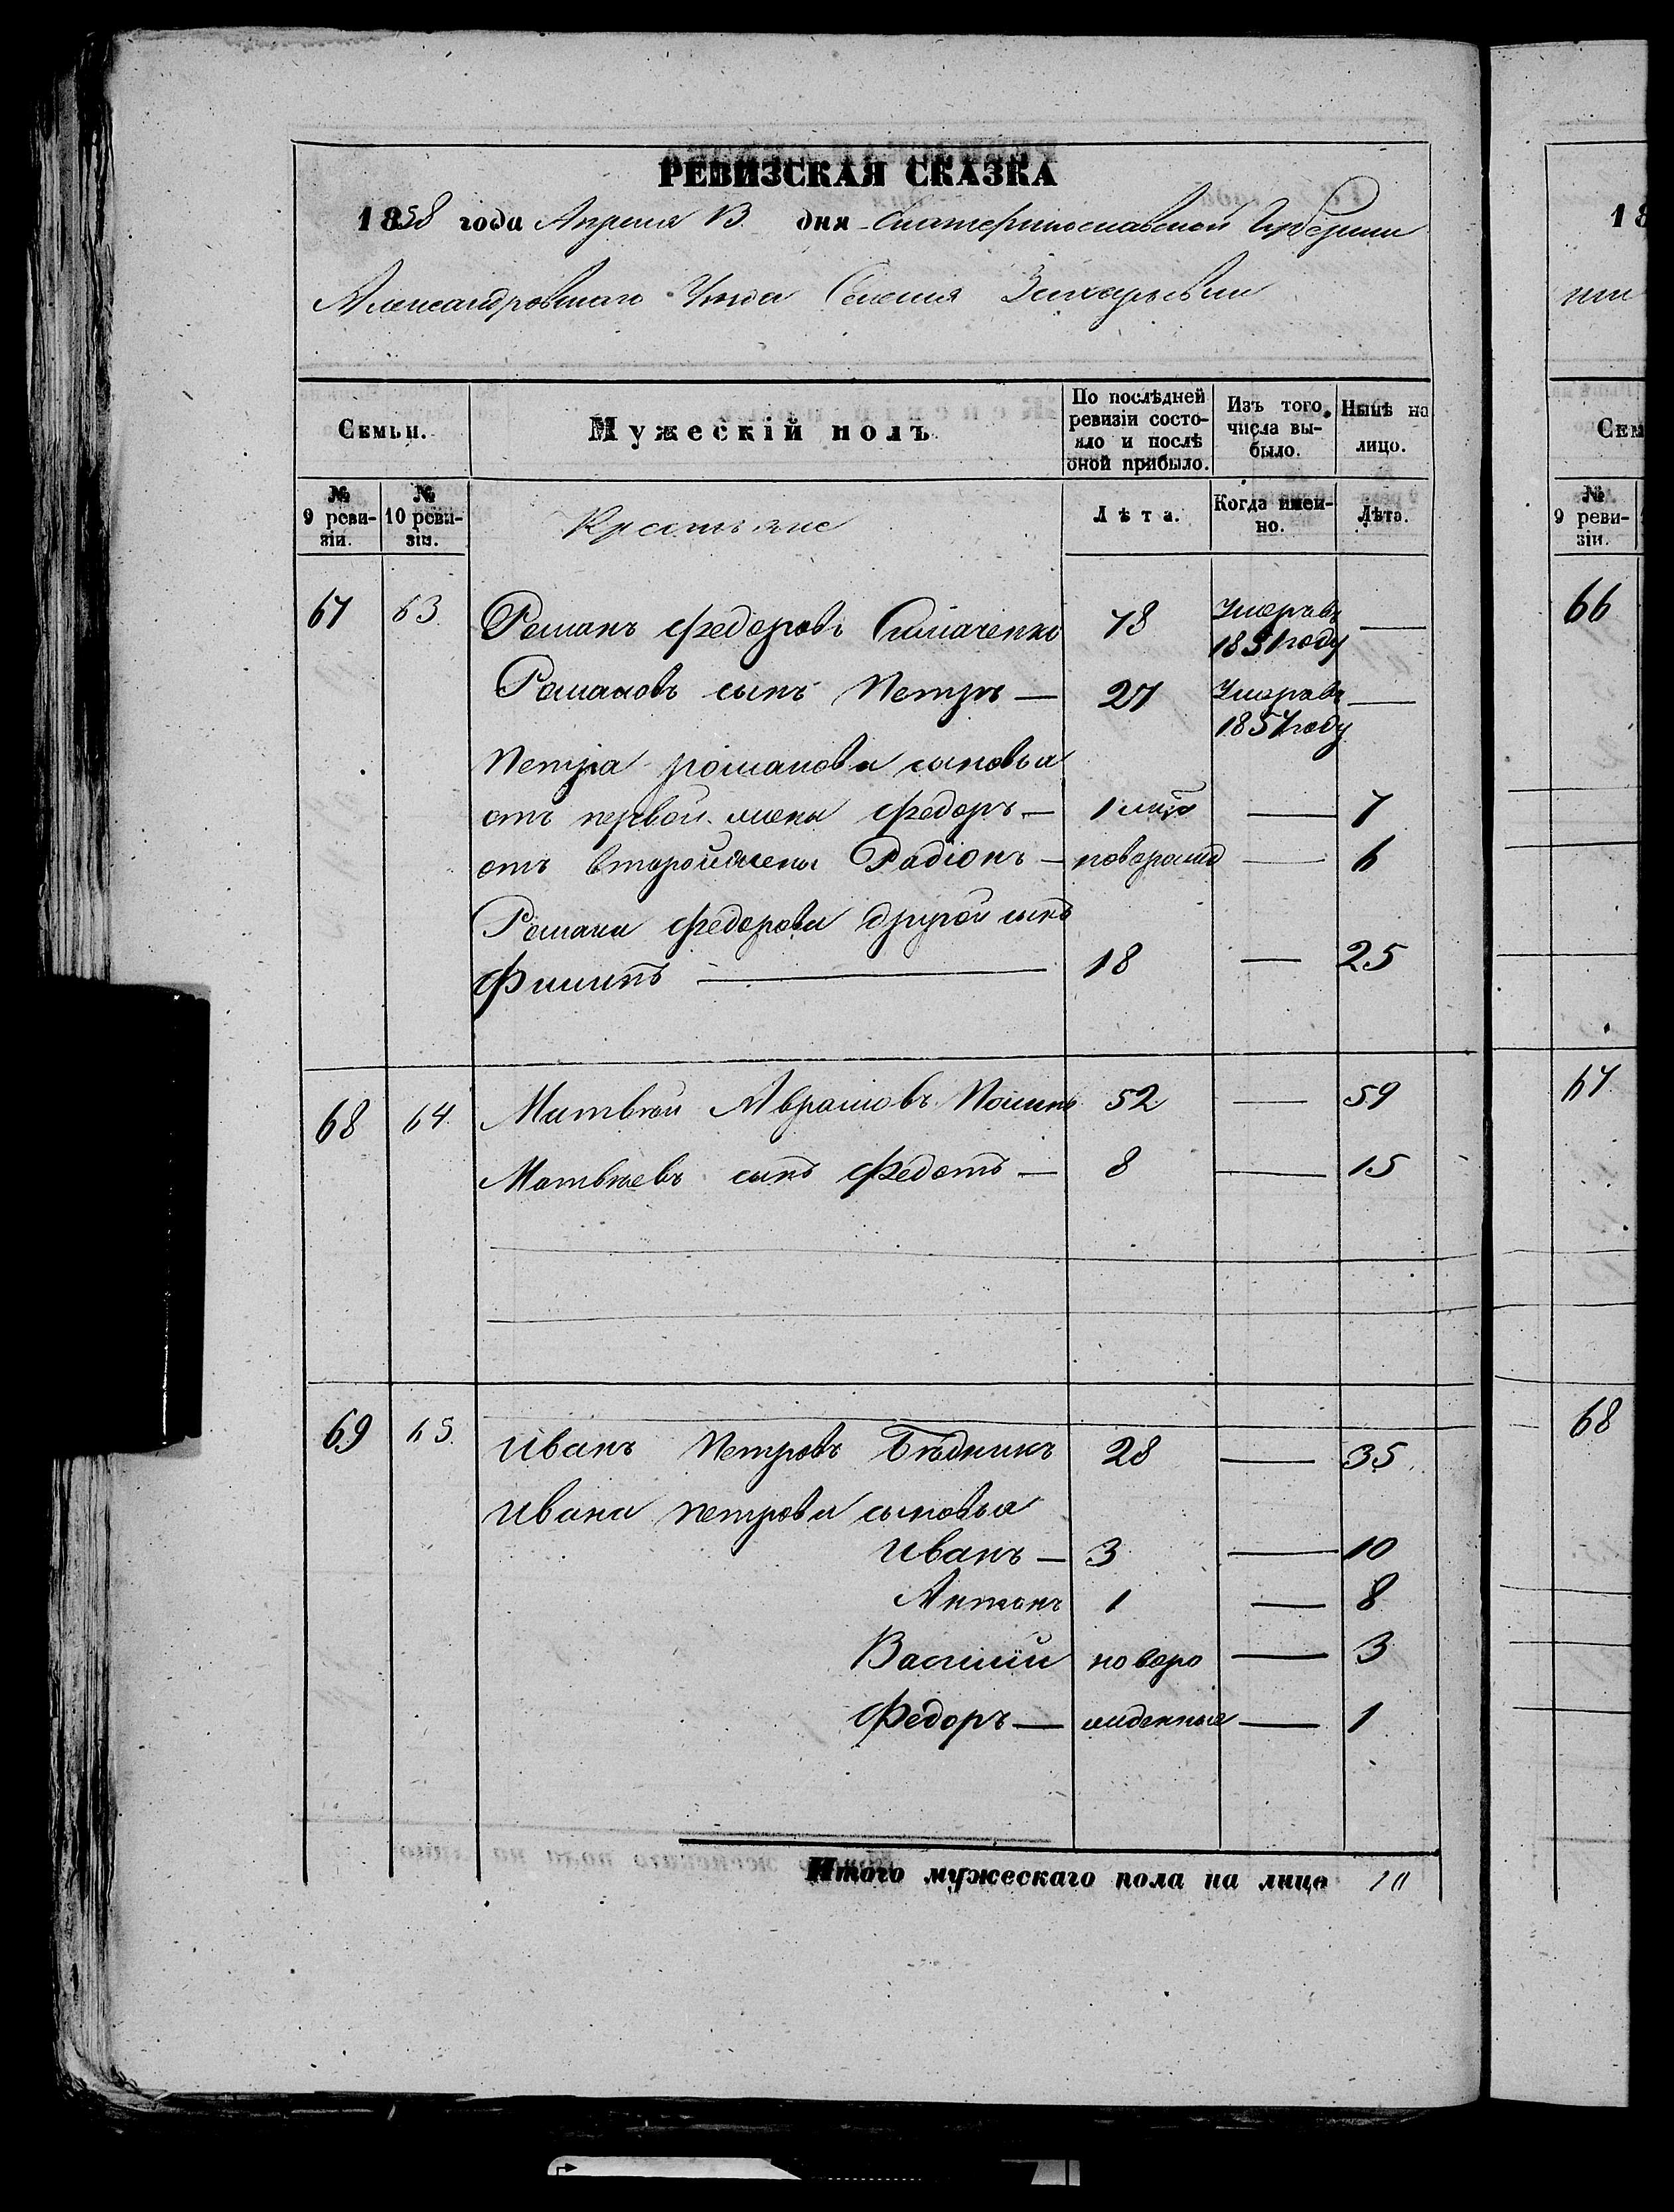 РЕВИЗСКАЯ СКАЗКА
1858 года Апреля 13 дня Екатеринославской Губернии
Александровскаго Уезда Селения Захарьевки
Семьи.
Мужескій полъ
По послѣдней ревизіи состояло и послѣ оной прибыло.
Изъ того числа выбыло.
Нынѣ на лицо.
№ 9 ревизіи.
№ 10 ревизіи.
Крестьяне
Лѣта.
Когда именно.
Лѣта.
67 63 Романъ Федоровъ 78 Умеръ въ 1851 году —
Романовъ сынъ Петръ — 27 Умеръ въ 1857 году —
Петра романова сыновья
отъ первой жены Федоръ — 1 — 7
отъ второй жены Радіонъ — новорожд — 6
Романа Федорова другой сынъ
Филипъ — 18 — 25
68 64 Матвѣй Аврамовъ 52 — 59
Матвѣевъ сынъ Федотъ — 8 — 15
69 65 Иванъ Петровъ Бѣдникъ 28 — 35
Ивана петрова сыновья
Иванъ — 3 — 10
Антонъ 1 — 8
Василій новоро — 3
Федоръ — жденные — 1
Итого мужескаго пола на лицо 10
18
Сем
№ 9 ревизіи.
66
67
68